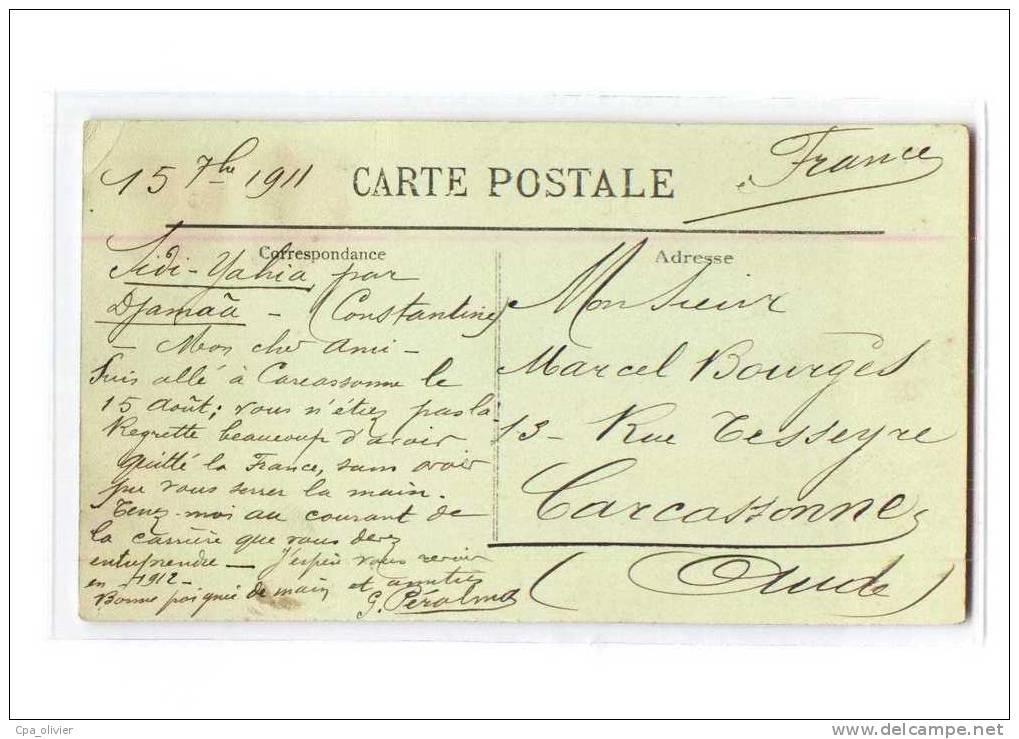 15 7bre 1911
CARTE POSTALE
France
Correspondance
Sidi-Yahia par
Djamâa - (Constantine)
- Mon cher Ami -
Suis allé à Carcassonne le
15 août; vous n'étiez pas là
Regrette beaucoup d'avoir
quitté la France, sans avoir
pu vous serrer la main.
Tenez-moi au courant de
la carrière que vous devez
entreprendre - J'espère vous revoir
en 1912 -
Bonne poignée de main et amitiés
G.
Adresse
Monsieur
Marcel Bourgès
13 - Rue Tesseyre
Carcassonne
(Aude)
Cpa_olivier
www.delcampe.net